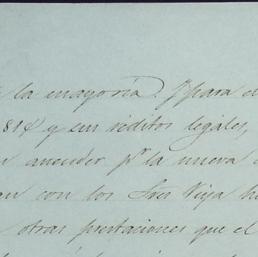 la mayoria. Y para e
814 y sus réditos legales,
ascender pr la nueva
an con los Sres Vega h
otras prestaciones que el